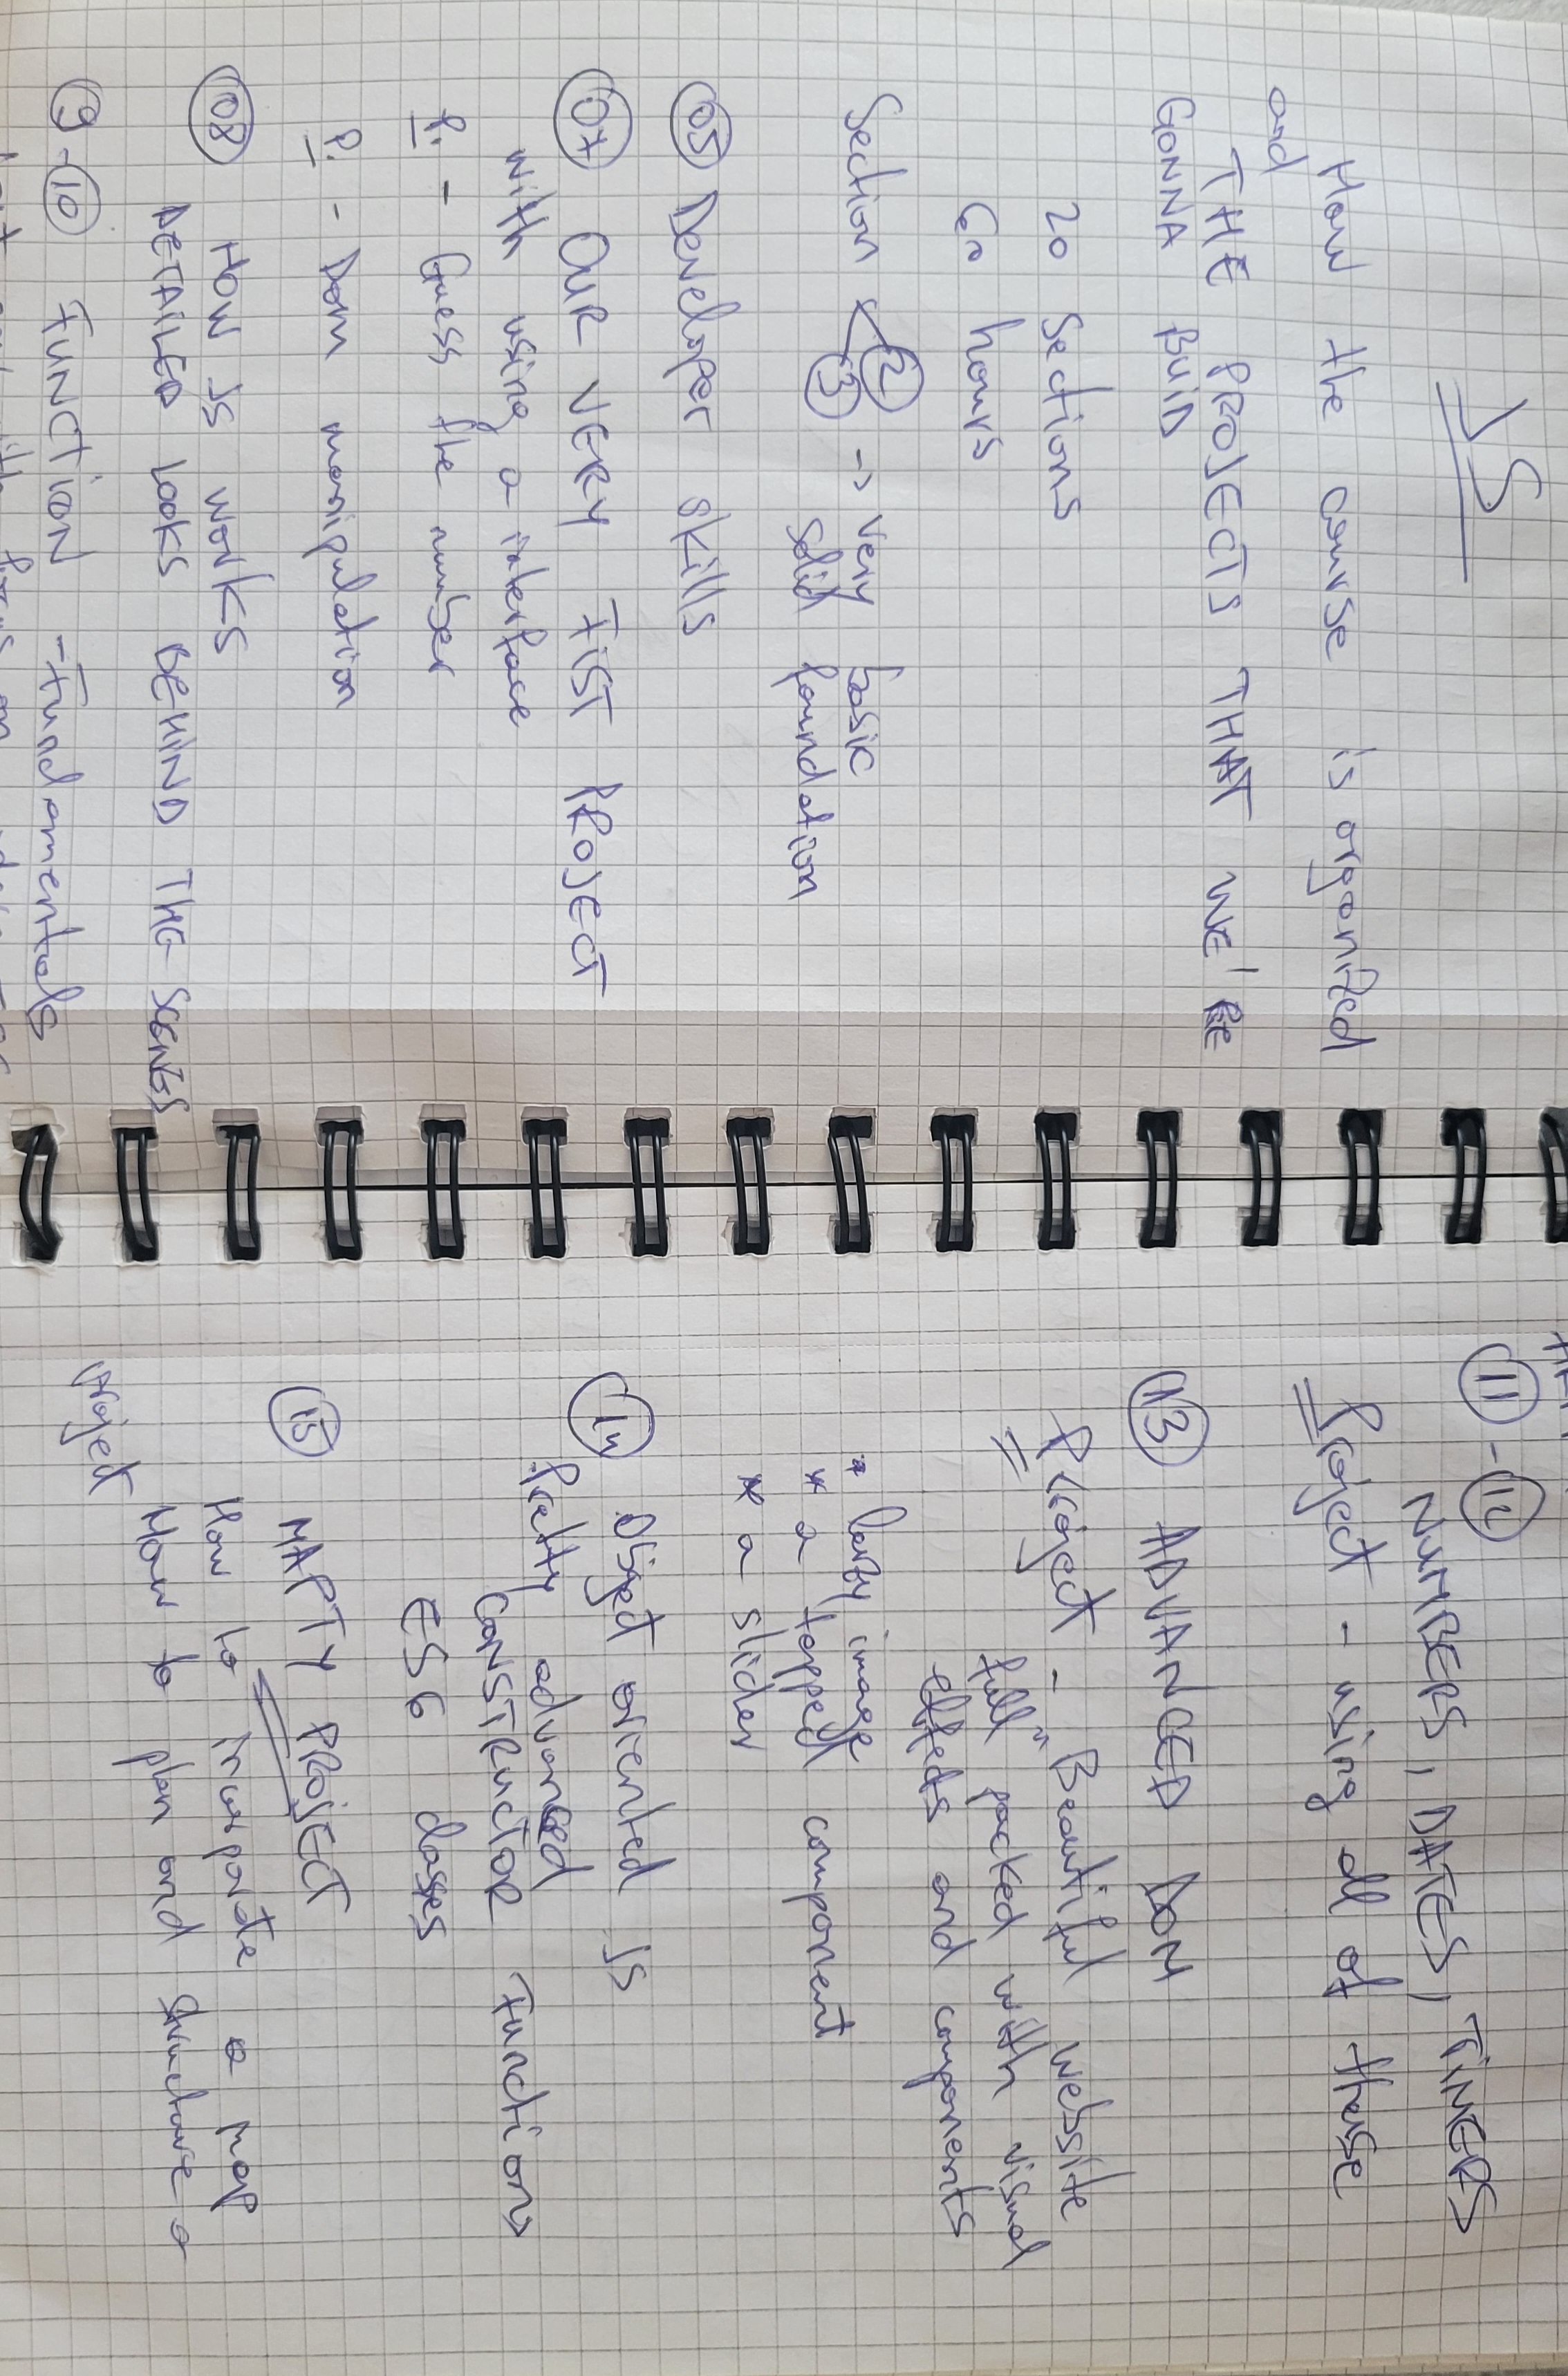 JS
How the course is organized
and
THE PROJECTS THAT WE'RE
GONNA BUID
20 Sections
60 hours
Section 2
3 -> very basic
solid foundation
05 Developer skills
07 OUR VERY FIST PROJECT
with using a interface
P. - Guess the number
P. - Dom manipulation
08 HOW JS WORKS
DETAILED LOOKS BEHIND THE SCENES
9-10 FUNCTION - Fundamentals
11 - 12
NUMBERS, DATES, TIMERS
Project - using all of these
13 ADVANCED DOM
Project - Beautiful website
full packed with visual
effects and components
* lazy image
* a tapped component
* a slider
14 Object oriented JS
Pretty advanced
CONSTRUCTOR Functions
ES6 classes
15 MAPTY PROJECT
How to incorporate a map
How to plan and structure a
project